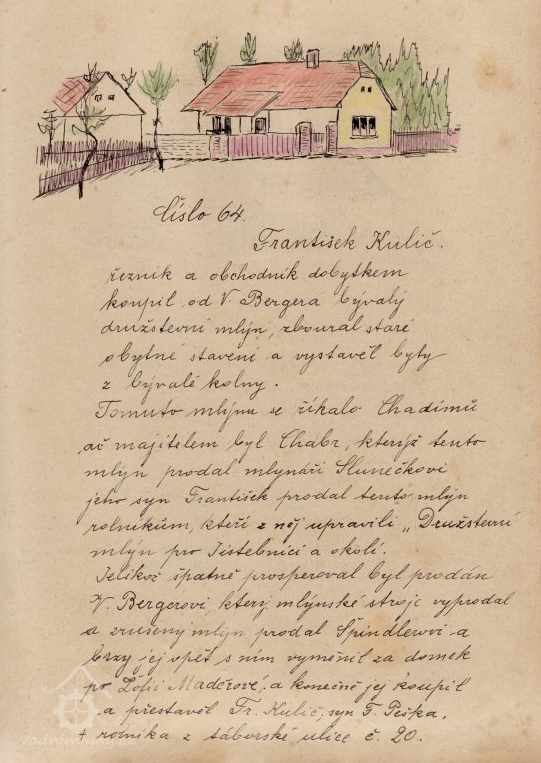 Číslo 64.
František Kulič.
řezník a obchodník dobytkem
koupil od V. Bergera bývalý
družstevní mlýn, zboural staré
obytné stavení a vystavěl byty
z bývalé kolny.
Tomuto mlýnu se říkalo Chadimů
ač majitelem byl Chabr, kterýž tento
mlýn prodal mlynáři Slunečkovi
jeho syn František prodal tento mlýn
rolníkům, kteří z něj upravili „Družstevní
mlýn pro Jistebnici a okolí.
Jelikož špatně prosperoval byl prodán
V. Bergerovi, který mlýnské stroje vyprodal
a zrušený mlýn prodal Špindlerovi a
brzy jej opět s ním vyměnil za domek
po Žofii Maděrové, a konečně jej koupil
a přestavěl Fr. Kulič, syn F. Peška,
+ rolníka z táborské ulice č. 20.
vodnimlyny.cz